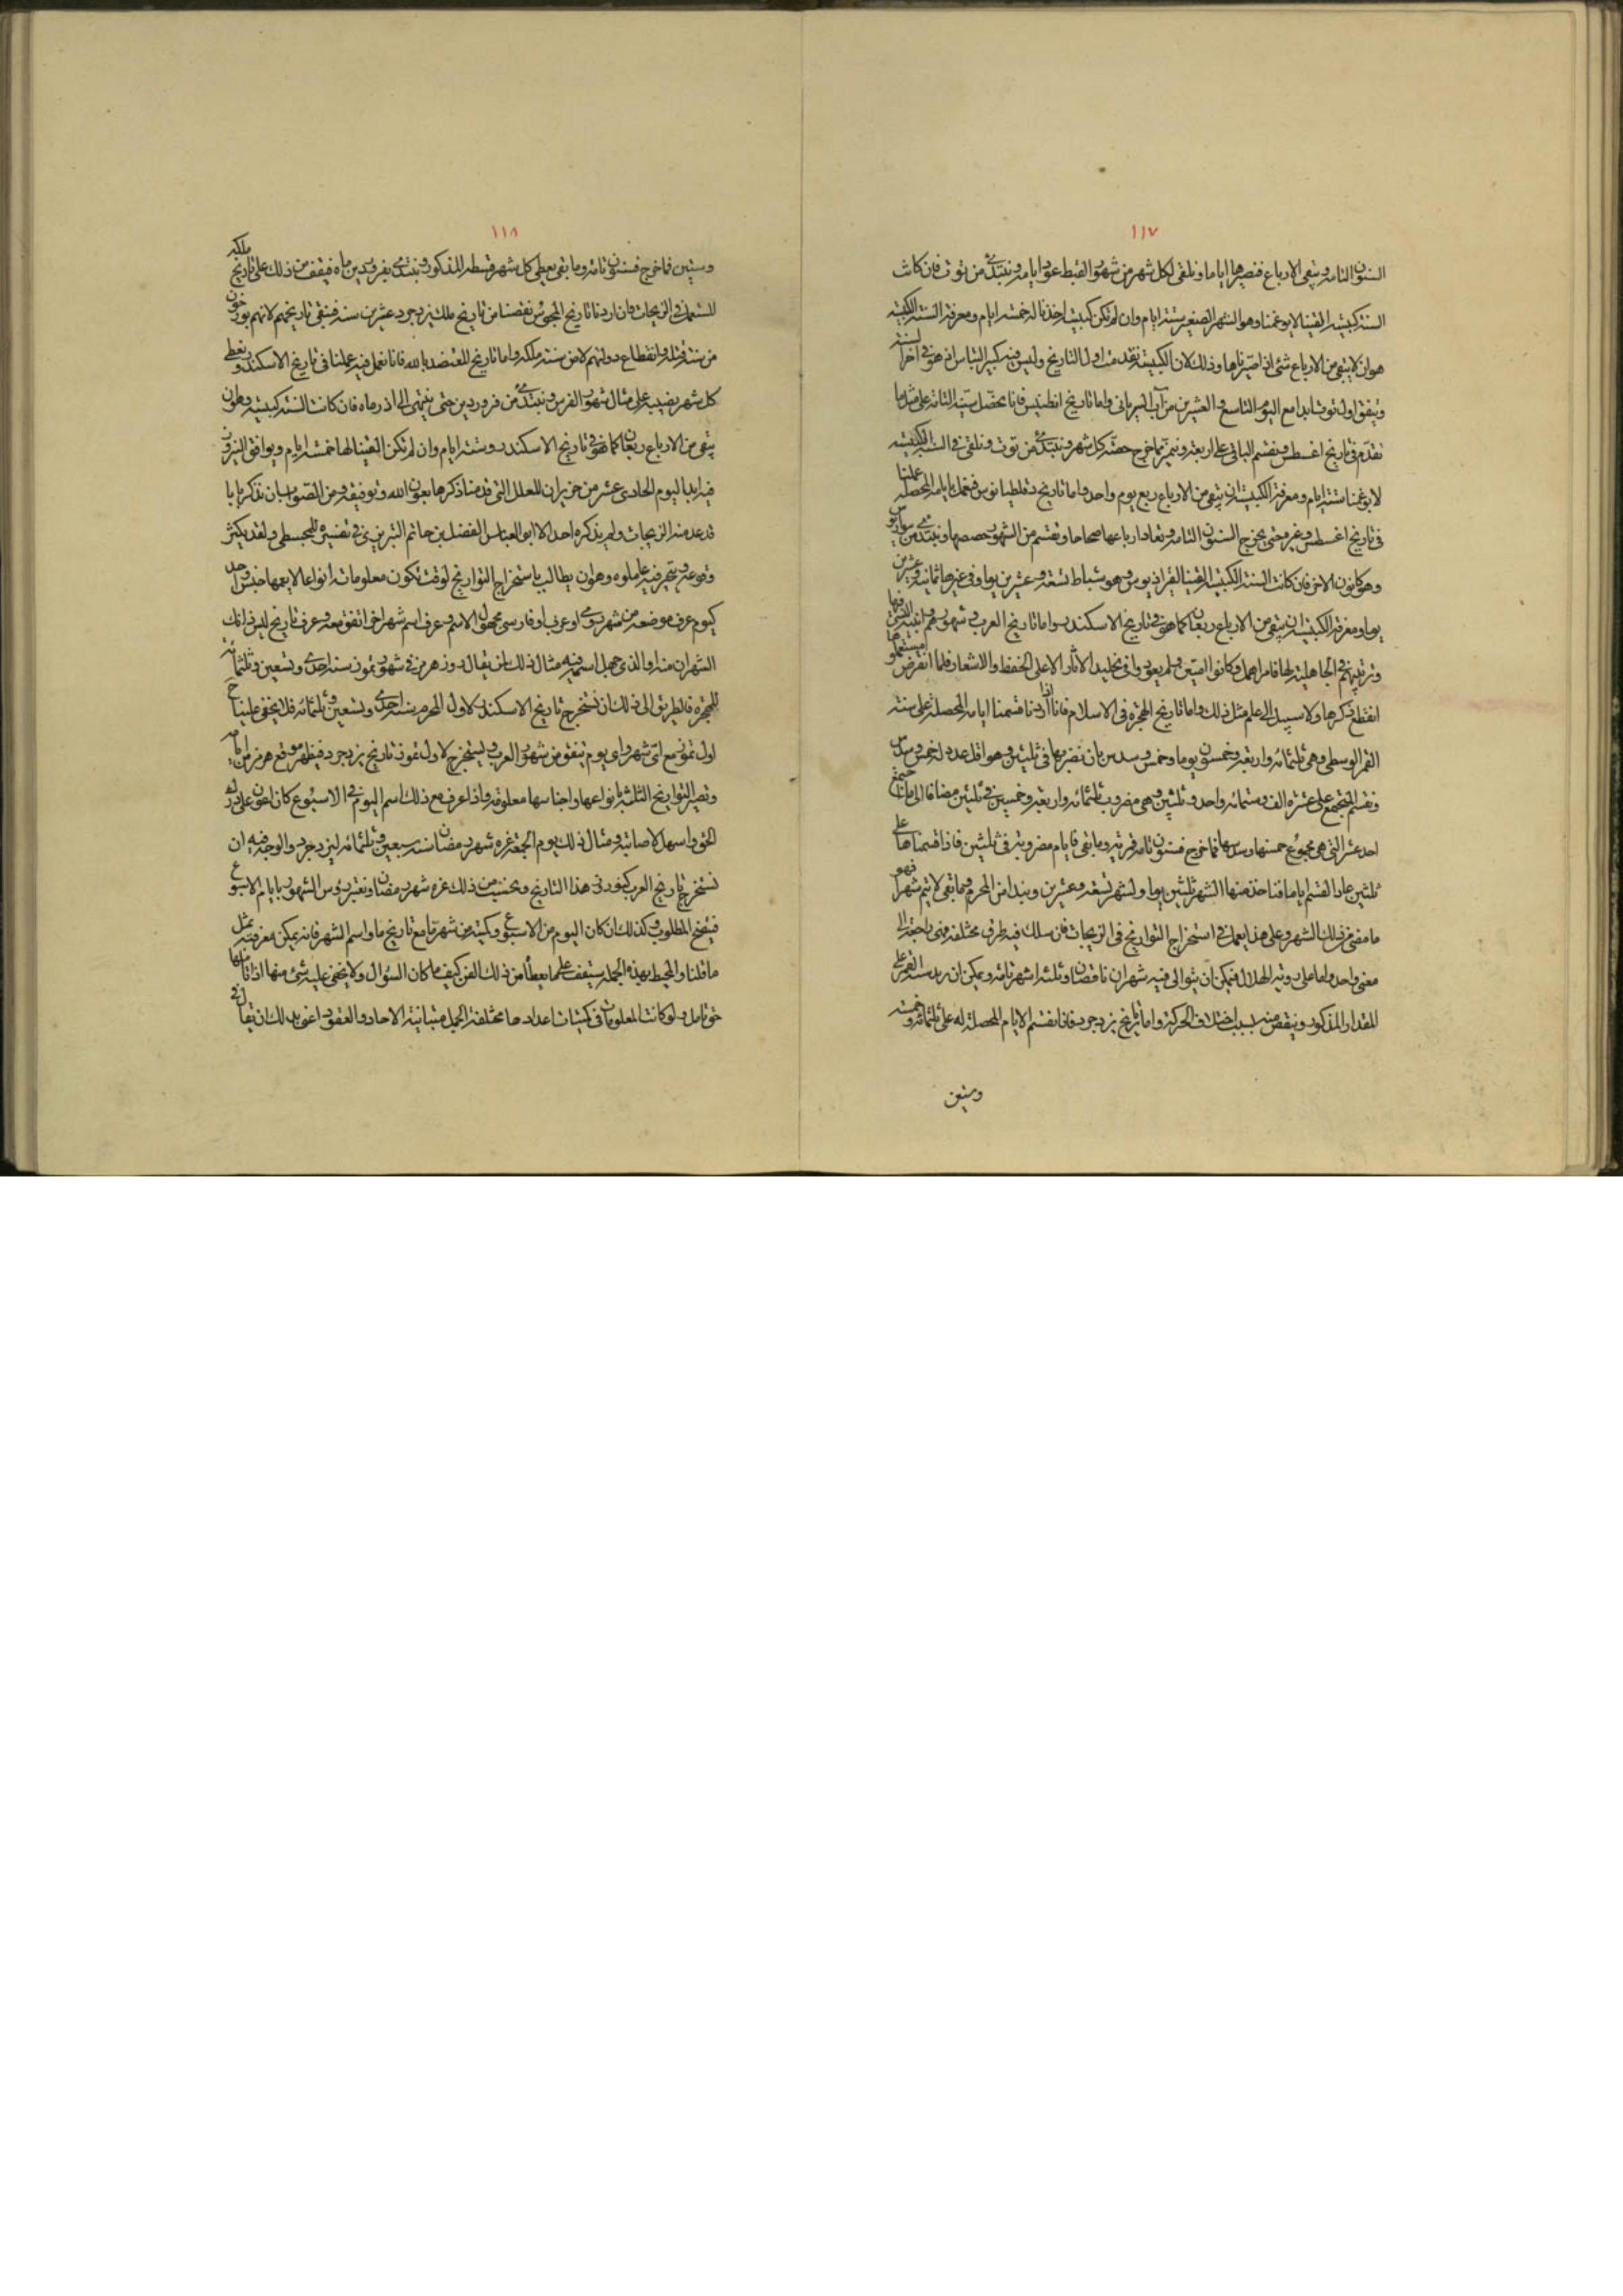 ١١٧
السنون التامة وتبقى الارباع فنصيرها اياما ونلقى لكل شهر من شهور القبط عدد ايامه ونبتدئ من توت فان كانت
السنة كبيسة القينا لابوغمنا وهو الشهر الصغير ستة ايام وان لم تكن كبيسة اخذنا له خمسة ايام ومعرفة السنة الكبيسة
هو ان لا يبقى من الارباع شئ اذا صيرناها وذلك لان الكبيسة تقدمت اول التاريخ وليس فيه كبير التباس انه هو فى اخر السنة
ويتفق اول توت ابدا مع اليوم التاسع والعشرين من آب السريانى واما تاريخ انطنينس فانا نحصل سنيه التامة على مثل ما
تقدم فى تاريخ اغسطس ونقسم الباقى على اربعة ونميز مما خرج حصة كل شهر ونبتدئ من توت ونلقى فى السنة الكبيسة
لابوغمنا ستة ايام ومعرفة الكبيسة ان يبقى من الارباع ربع يوم واحد واما تاريخ دقلطيانوس فنعمل بايامه المحصلة عملنا
فى تاريخ اغسطس وغيره حتى يخرج السنون التامة وتعاد ارباعها صحاحا ونقسم من الشهور حصصها ونبتدئ من ينواريوس
وهو كانون الاخر فان كانت السنة الكبيسة القينا لفبراريوس وهو شباط تسعة وعشرين يوما وفى غيرها ثمانية وعشرين
يوما ومعرفة الكبيسة ان يبقى من الارباع ربعان كما هو فى تاريخ الاسكندر واما تاريخ العرب فى شهورهم
وترتيبهم فى الجاهلية لها فامر اهمل وكانوا اميين ولم يعودوا فى تخليد الاثار الا على الحفظ والاشعار فلما انقرض مستعملوها
انقطع ذكرها ولا سبيل الى علم مثل ذلك واما تاريخ الهجرة فى الاسلام فانا اذا اردنا قسمنا ايامه المحصلة على سنة
القمر الوسطى وهى ثلثمائة واربعة وخمسون يوما وخمس وسدس بان نضربها فى ثلثين وهو اقل عدد له خمس وسدس
ونقسم المجتمع على عشرة الف وستمائة واحد وثلثين وهى مضروب ثلثمائة واربعة وخمسين فى ثلثين مضافا الى ما اجتمع
احد عشر التى هى مجموع خمسها وسدسها فما خرج فسنون تامة قمرية وما بقى فايام مضروبة فى ثلثين فاذا قسمناها على
ثلثين عاد القسم اياما فناخذ منها الشهر ثلثين يوما ولشهر تسعة وعشرين ونبدا من المحرم وما بقى لا يتم شهرا فهو
ما مضى من ذلك الشهر وعلى هذا يعمل فى استخراج التواريخ فى الزيجات فان سلك فيه طرق مختلفة فهى راجعة الى
معنى واحد واما على روية الهلال فيمكن ان يتوالى فيه شهران ناقصان وثلثة اشهر تامة ويمكن ان يزيد سنة القمر على
المقدار المذكور وينقص منه بسبب اختلاف الحركة واما تاريخ يزدجرد فانا نقسم الايام المحصلة له على ثلثمائة وخمسة
وستين
١١٨
وستين فما خرج فسنون تامة وما بقى يعطى كل شهر قسطه المذكور ونبتدئ بفروردين ماه فيقف من ذلك على تاريخ ملكه
المستعمل فى الزيجات فان اردنا تاريخ المجوس نقصنا من تاريخ ملك يزدجرد عشرين سنة فيبقى تاريخهم لانهم يورخون
من سنة قتله وانقطاع دولتهم لا من سنة ملكه واما تاريخ المعتضد بالله فانا نعمل فيه عملنا فى تاريخ الاسكندر ونعطى
كل شهر نصيبه على مثال شهور الفرس ونبتدئ من فروردين حتى ننتهى الى اذرماه فان كانت السنة كبيسة وهو ان
يبقى من الارباع ربعان كما هو فى تاريخ الاسكندر وستة ايام وان لم تكن القينا لها خمسة ايام ويوافق النيروز
فيه ابدا اليوم الحادى عشر من حزيران للعلل التى قدمنا ذكرها بعون الله وتوفيقه ومن الصواب ان نذكر بابا
قد عدمنه الزيجات ولم يذكره احد الا ابو العباس الفضل بن حاتم التبريزى فى تفسيره للمجسطى ولقد يكثر
وقوعه ويتحير فيه عاملوه وهو ان يطالب باستخراج التواريخ لوقت تكون معلوماته انواعا لا يعمها جنس واحد
كيوم عرف موضعه من شهر رومى او عربى او فارسى مجهول الاسم وعرف اسم شهر اخر اتفق معه وعرف تاريخ ليس ذانك
الشهران منه او الذى جهل اسمه فيه مثال ذلك ان يقال روز هرمز فى شهر تموز سنة احدى وتسعين وثلثمائة
للهجرة فالطريق الى ذلك ان نستخرج تاريخ الاسكندر لاول المحرم سنة احدى وتسعين وثلثمائة فلا يخفى علينا ح
اول تموز مع اى شهر واى يوم يتفق من شهور العرب ويستخرج لاول تموز تاريخ يزدجرد فيظهر موقع هرمز من ايامه
وتصير التواريخ الثلثة بانواعها واجناسها معلومة واذا عرف مع ذلك اسم اليوم فى الاسبوع كان اعون على درك
الحق واسهل لاصابته ومثال ذلك يوم الجمعة غرة شهر رمضان سنة سبعين وثلثمائة ليزدجرد والوجه فيه ان
نستخرج تاريخ العرب لنوروز هذا التاريخ ونحتسب من ذلك غرة شهر رمضان ونعتبر رؤس الشهور بايام الاسبوع
فيتضح المطلوب وكذلك ان كان اليوم من الاسبوع وكميته من شهر ما مع تاريخ ما واسم الشهر فانه يمكن معرفته بمثل
ما قلنا والمحيط بهذه الجملة سيقف على ما يعطا من ذلك الفن كيف ما كان السؤال ولا يخفى عليه شئ منها اذا تاملها
حق تامل ولو كانت المعلومات فى كميات اعدادها مختلفة الجمل متباينة الاحاد والعقود اعنى بذلك ان يقال فى